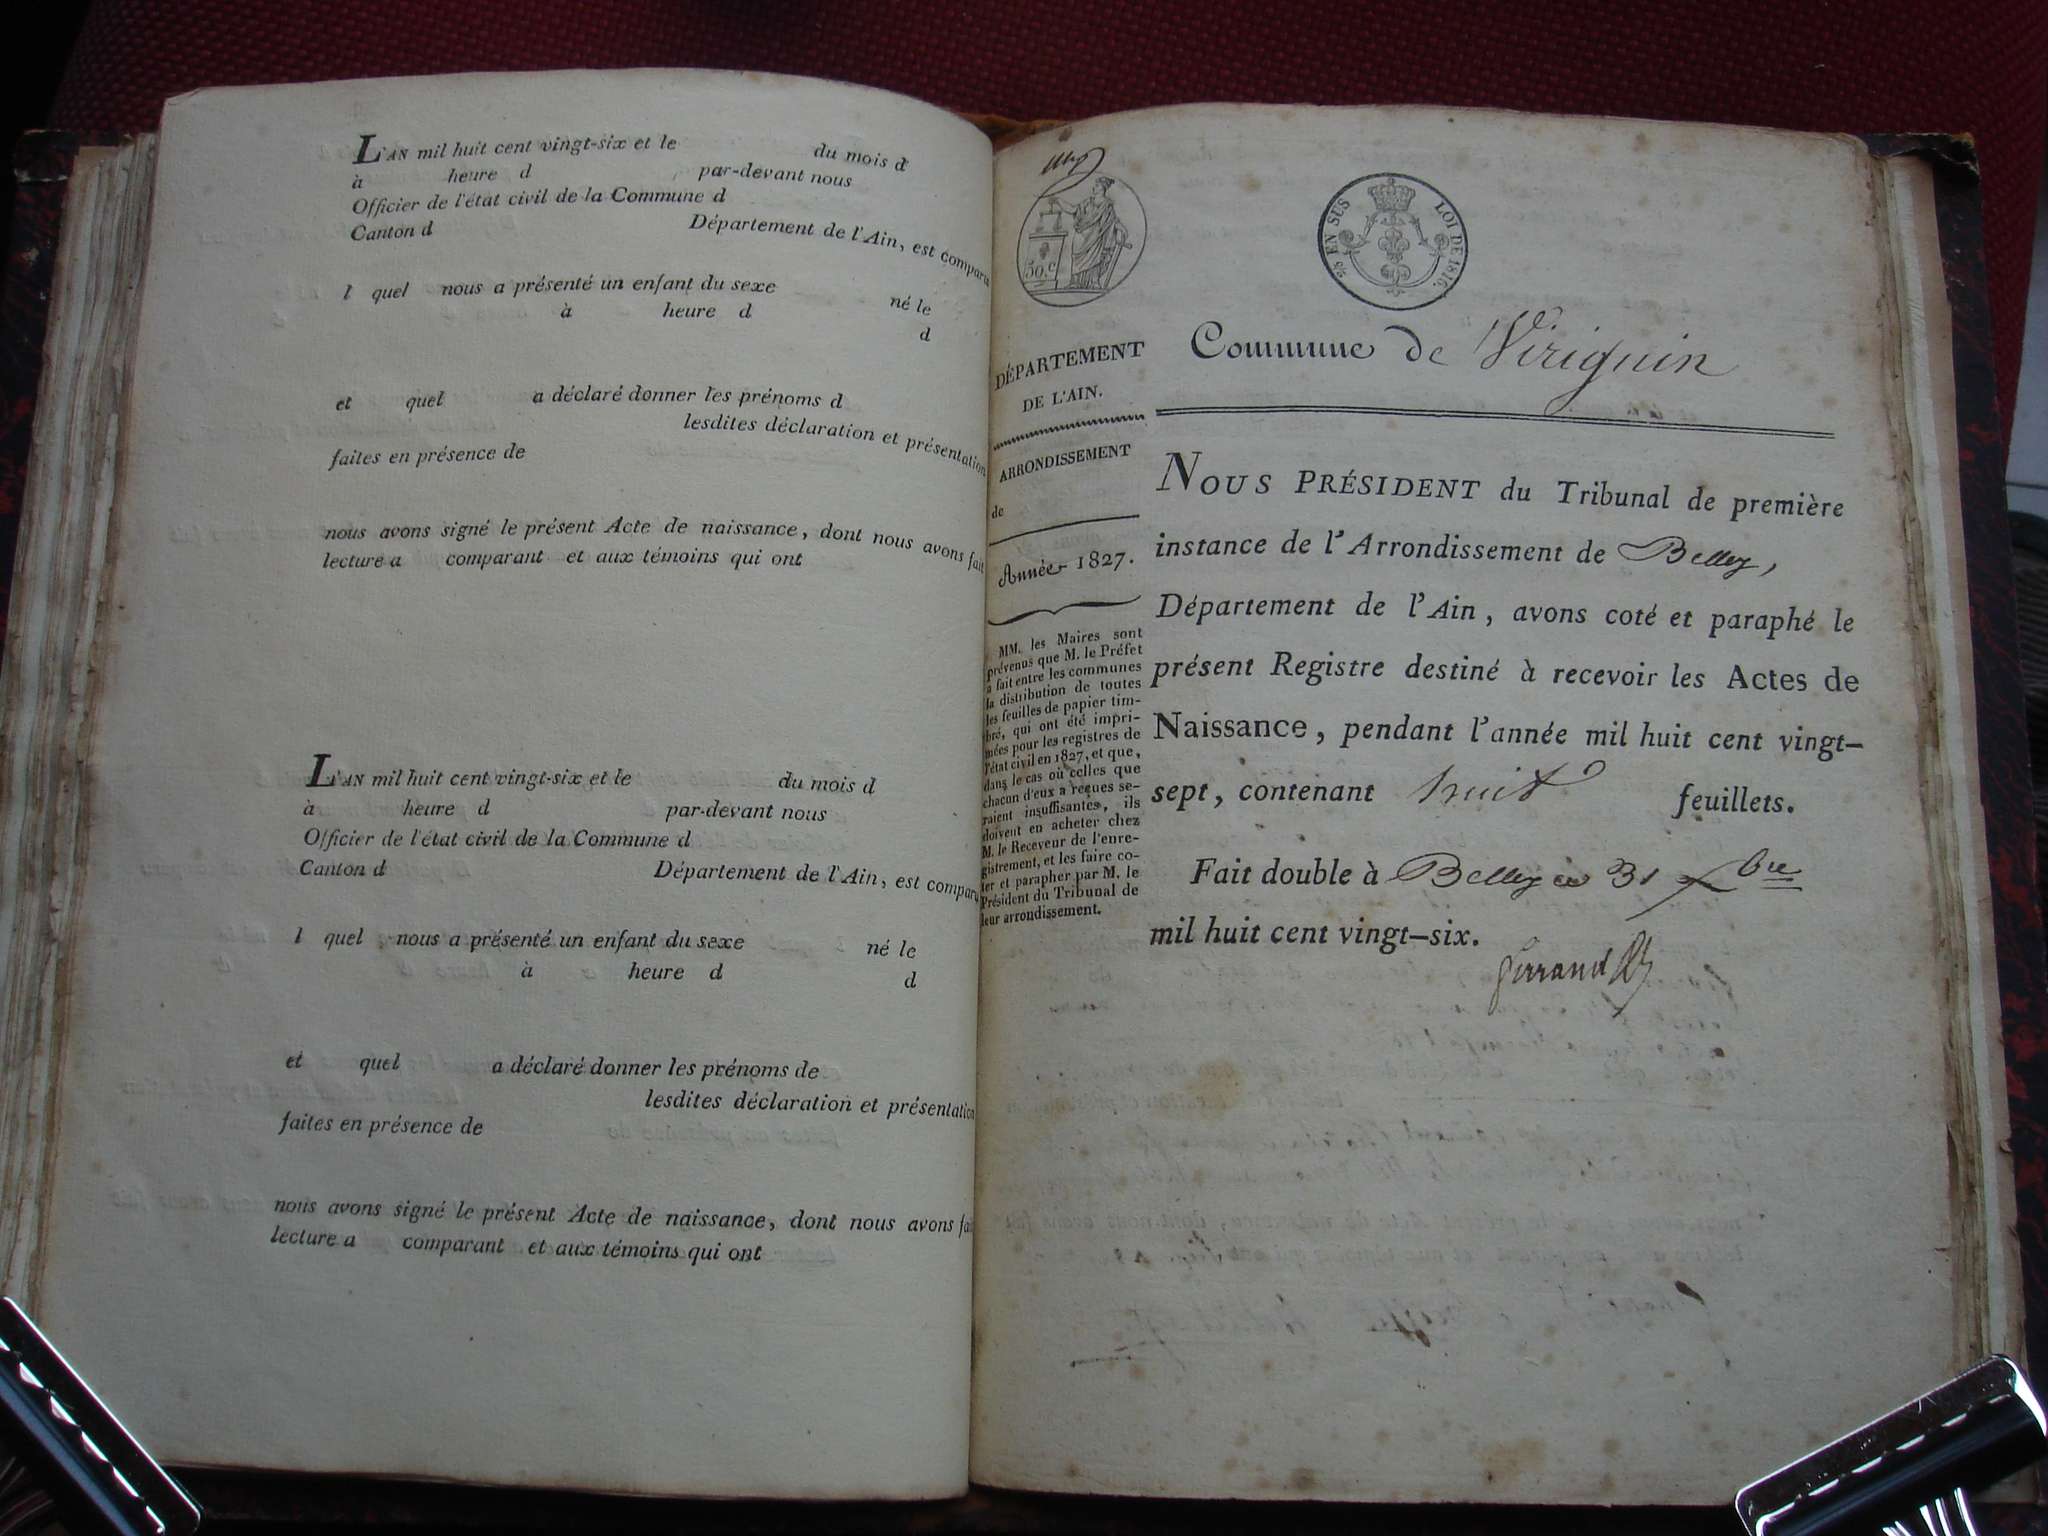 L'AN mil huit cent vingt-six et le du mois d
à heure d par-devant nous
Officier de l'état civil de la Commune d
Canton d Département de l'Ain, est comparu
l quel nous a présenté un enfant du sexe né le
à heure d
d
et quel a déclaré donner les prénoms d
lesdites déclaration et présentation
faites en présence de
nous avons signé le présent Acte de naissance, dont nous avons fait
lecture a comparant et aux témoins qui ont
L'AN mil huit cent vingt-six et le du mois d
à heure d par-devant nous
Officier de l'état civil de la Commune d
Canton d Département de l'Ain, est comparu
l quel nous a présenté un enfant du sexe né le
à heure d d
et quel a déclaré donner les prénoms de
lesdites déclaration et présentation
faites en présence de
nous avons signé le présent Acte de naissance, dont nous avons fai
lecture a comparant et aux témoins qui ont
50.c
EN SUS LOI DE 1816.
DÉPARTEMENT
DE L'AIN.
ARRONDISSEMENT
de
Année 1827.
MM. les Maires sont
prévenus que M. le Préfet
a fait entre les communes
la distribution de toutes
les feuilles de papier tim-
bré, qui ont été impri-
mées pour les registres de
l'état civil en 1827, et que,
dans le cas où celles que
chacun d'eux a reçues se-
raient insuffisantes, ils
doivent en acheter chez
M. le Receveur de l'enre-
gistrement, et les faire co-
ter et parapher par M. le
Président du Tribunal de
leur arrondissement.
Commune de Virignin
NOUS PRÉSIDENT du Tribunal de première
instance de l'Arrondissement de Belley,
Département de l'Ain, avons coté et paraphé le
présent Registre destiné à recevoir les Actes de
Naissance, pendant l'année mil huit cent vingt-
sept, contenant huit feuillets.
Fait double à Belley ce 31 Xbre
mil huit cent vingt-six.